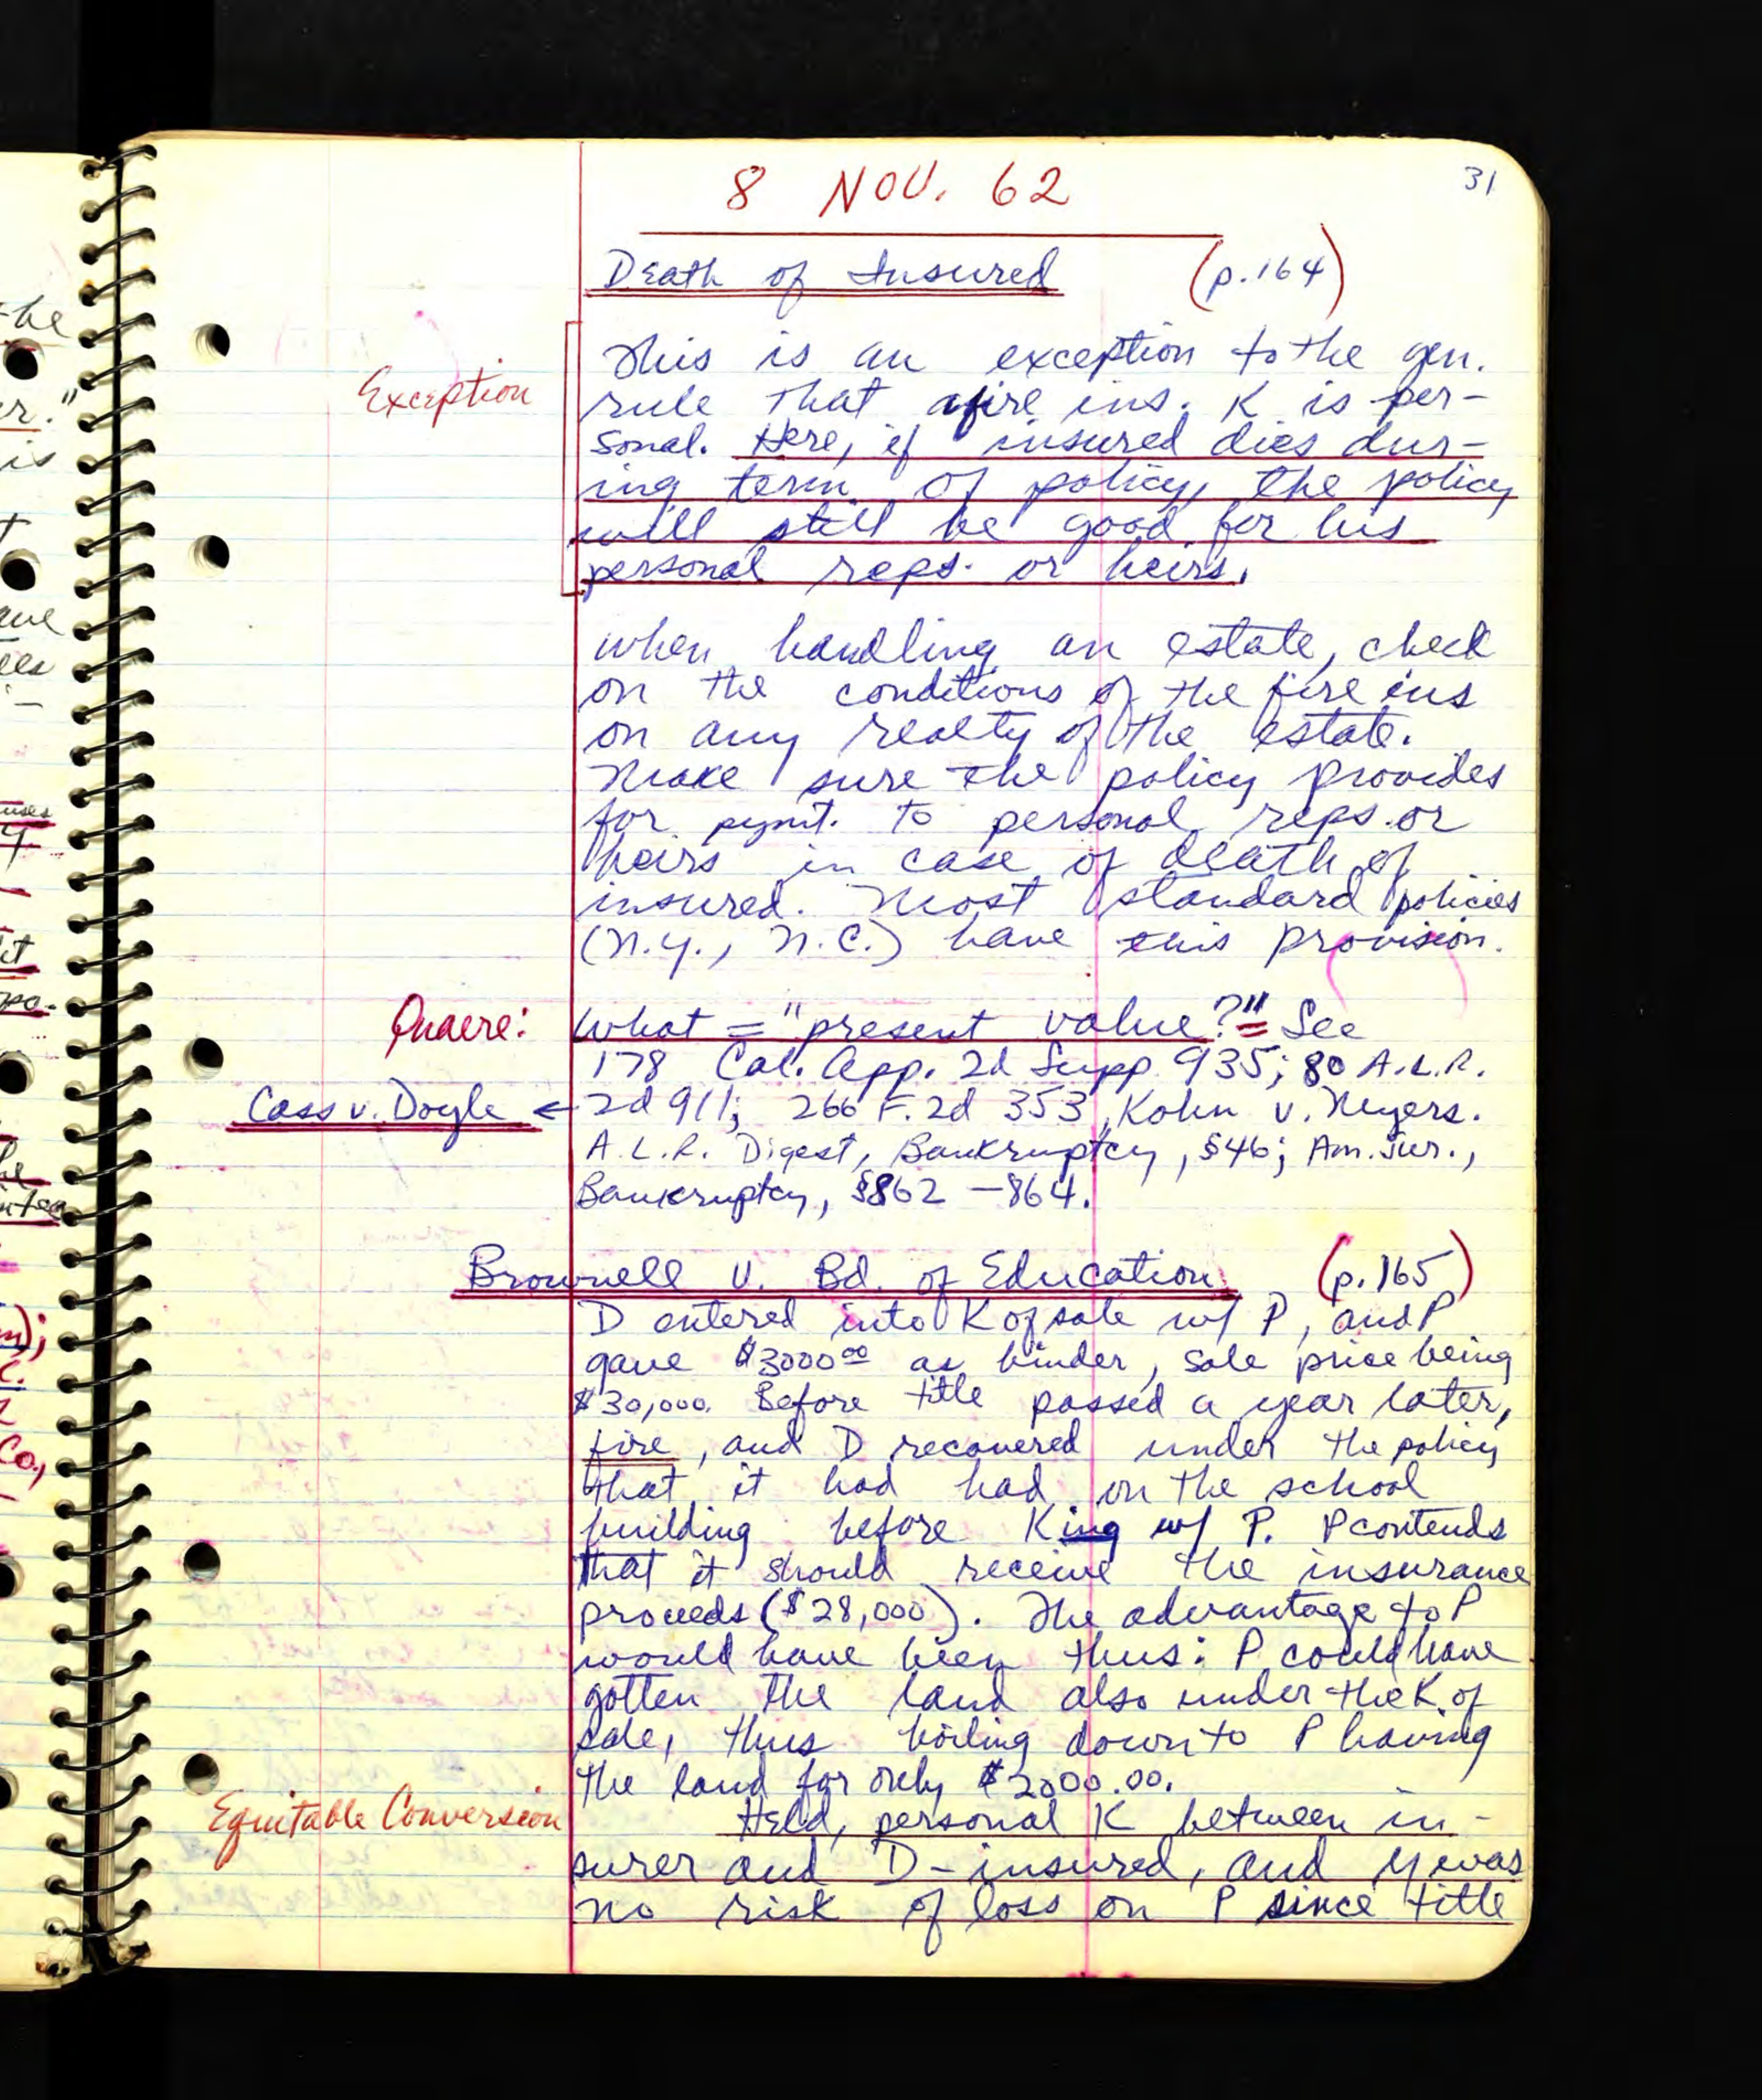 8 NOV. 62
31
Death of Insured (p.164)
This is an exception to the gen.
Exception
rule that a fire ins. K is per-
sonal. Here, if insured dies dur-
ing term of policy, the policy
will still be good for his
personal reps. or heirs.
When handling an estate, check
on the conditions of the fire ins
on any realty of the estate.
Make sure the policy provides
for pymt. to personal reps. or
heirs in case of death of
insured. Most standard policies
(N.Y., N.C.) have this provision.
Quaere: What = "present value?" See
178 Cal. App. 2d Supp. 935; 80 A.L.R.
Cass v. Doyle ← 2d 911; 266 F. 2d 353, Kohn v. Myers.
A.L.R. Digest, Bankruptcy, §46; Am. Jur.,
Bankruptcy, §862 - 864.
Brownell v. Bd. of Education (p.165)
D entered into K of sale w/ P, and P
gave $3000.00 as binder, sale price being
$30,000. Before title passed a year later,
fire, and D recovered under the policy
that it had had on the school
building before King w/ P. P contends
that it should receive the insurance
proceeds ($28,000). The advantage to P
would have been thus: P could have
gotten the land also under the K of
sale, thus boiling down to P having
the land for only $2000.00.
Equitable Conversion
Held, personal K between in-
surer and D-insured, and y was
no risk of loss on P since title
-he
er."
is
ave
uses
it
Co.,